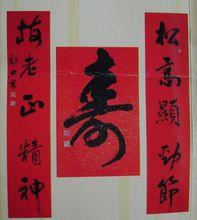 松高顯勁節
壽
梅老正精神